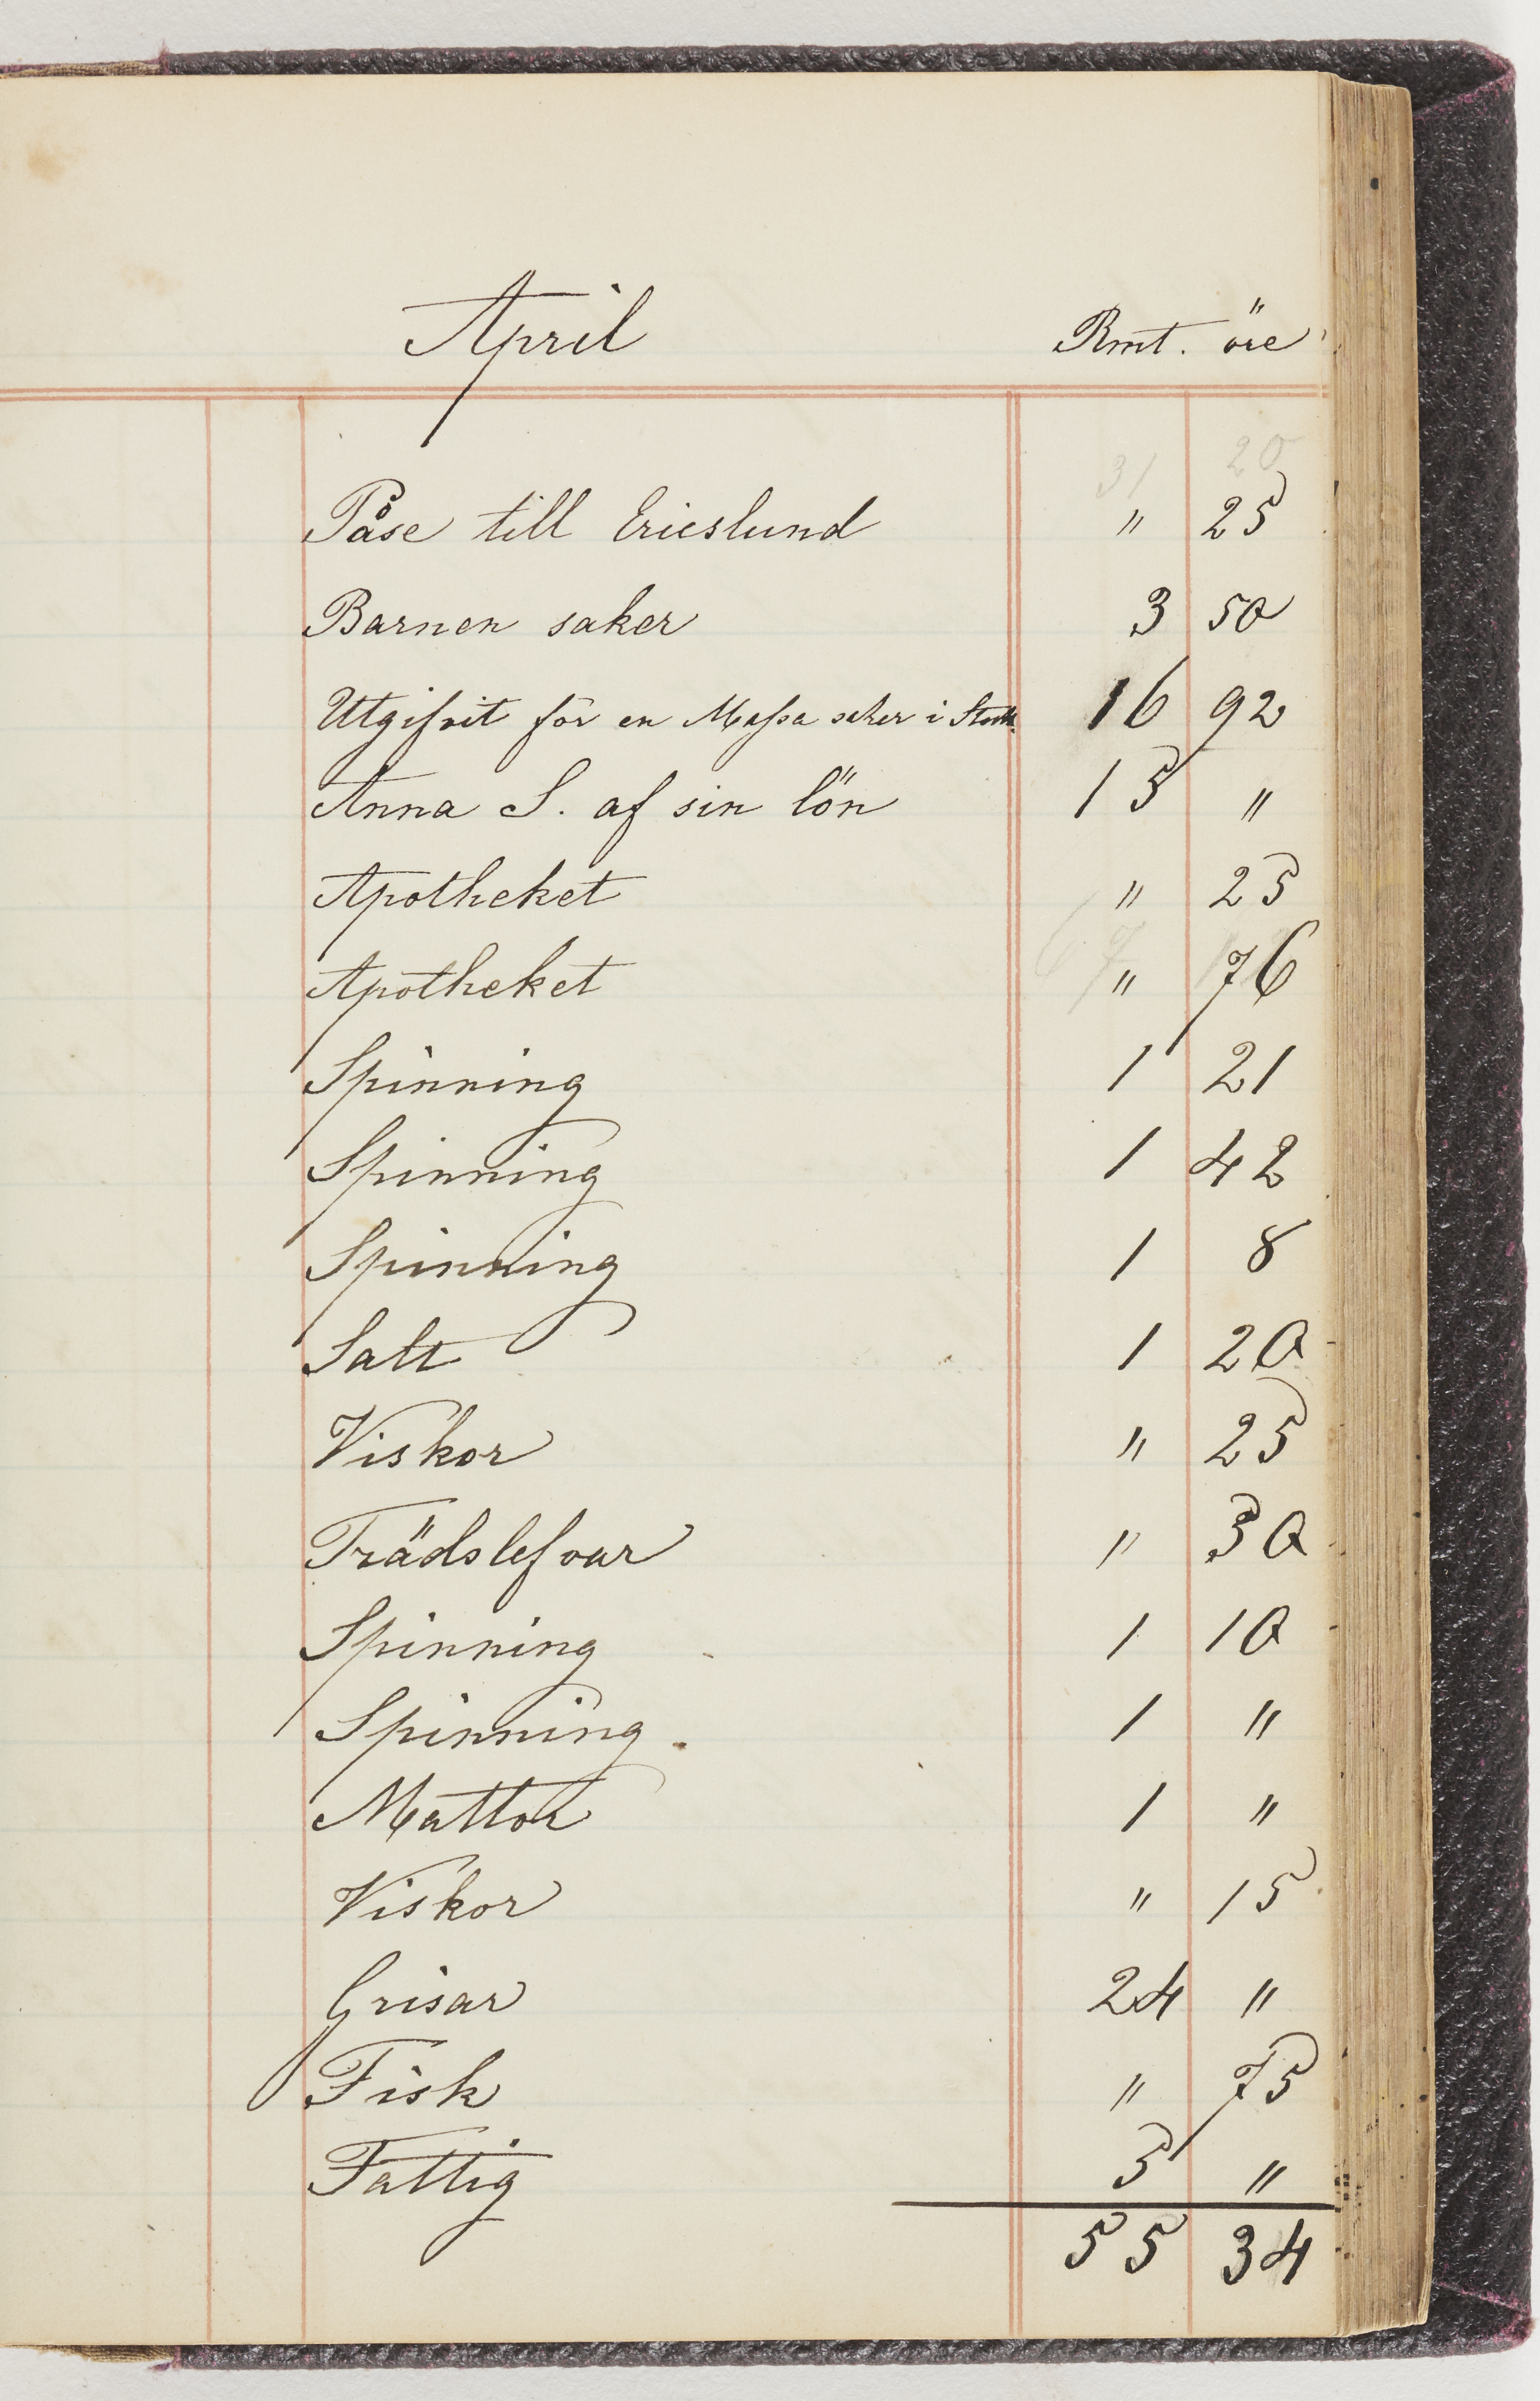 April Rmt. öre
31 20
Påse till Ericslund " 25
Barnen saker 3 50
Utgifvit för en Massa saker i Stockh. 16 92
Anna S. af sin lön 15 "
Apotheket " 25
Apotheket " 76
Spinning 1 21
Spinning 1 42
Spinning 1 8
Salt 1 20
Viskor " 25
Trädslefvar " 30
Spinning 1 10
Spinning 1 "
Mattor 1 "
Viskor " 15
Grisar 24 "
Fisk " 75
Fattig 5 "
55 34